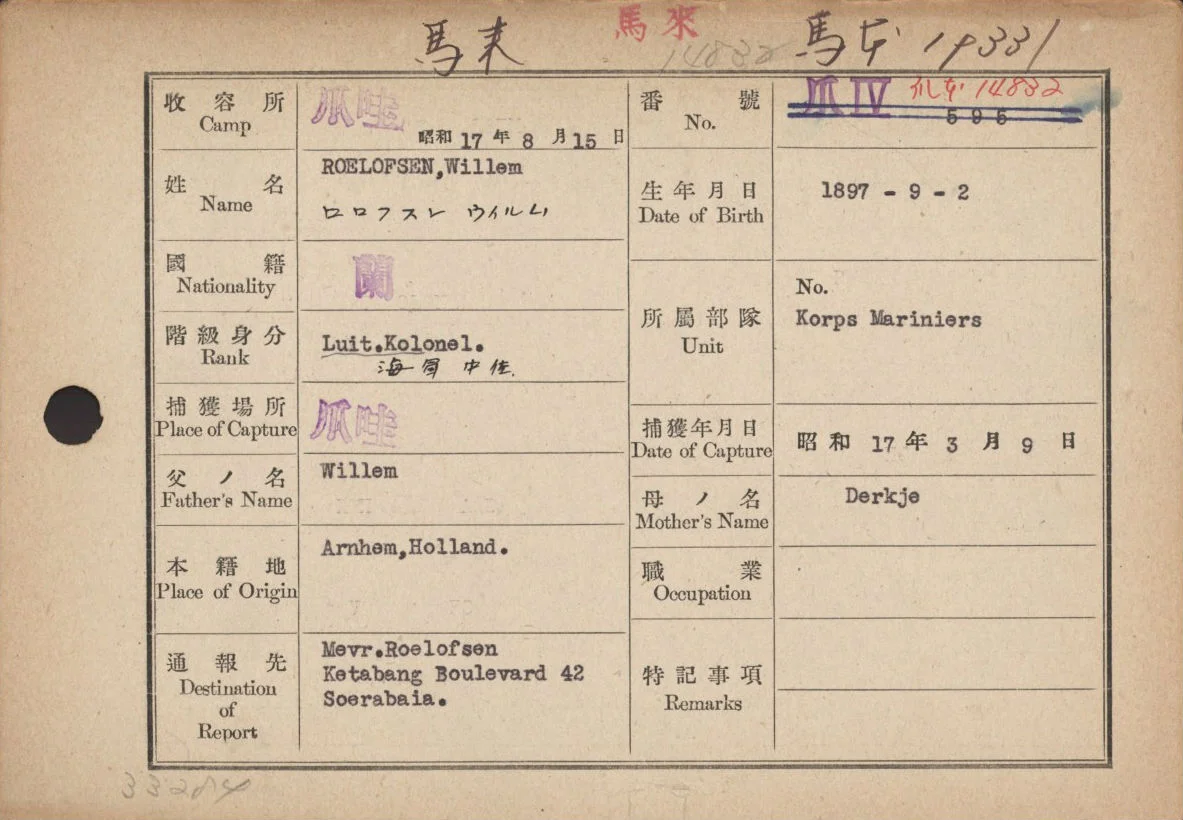 馬来 馬來 馬本 19331
14832
收容所
Camp
爪哇
昭和 17 年 8 月 15 日
番號
No.
爪 IV 爪本 14832
595
姓名
Name
ROELOFSEN,Willem
ロロフスレ ウイルム
生年月日
Date of Birth
1897 - 9 - 2
國籍
Nationality
蘭
所屬部隊
Unit
No.
Korps Mariniers
階級身分
Rank
Luit.Kolonel.
海軍中佐.
捕獲場所
Place of Capture
爪哇
捕獲年月日
Date of Capture
昭和 17 年 3 月 9 日
父ノ名
Father's Name
Willem
母ノ名
Mother's Name
Derkje
本籍地
Place of Origin
Arnhem,Holland.
職業
Occupation
通報先
Destination
of
Report
Mevr.Roelofsen
Ketabang Boulevard 42
Soerabaia.
特記事項
Remarks